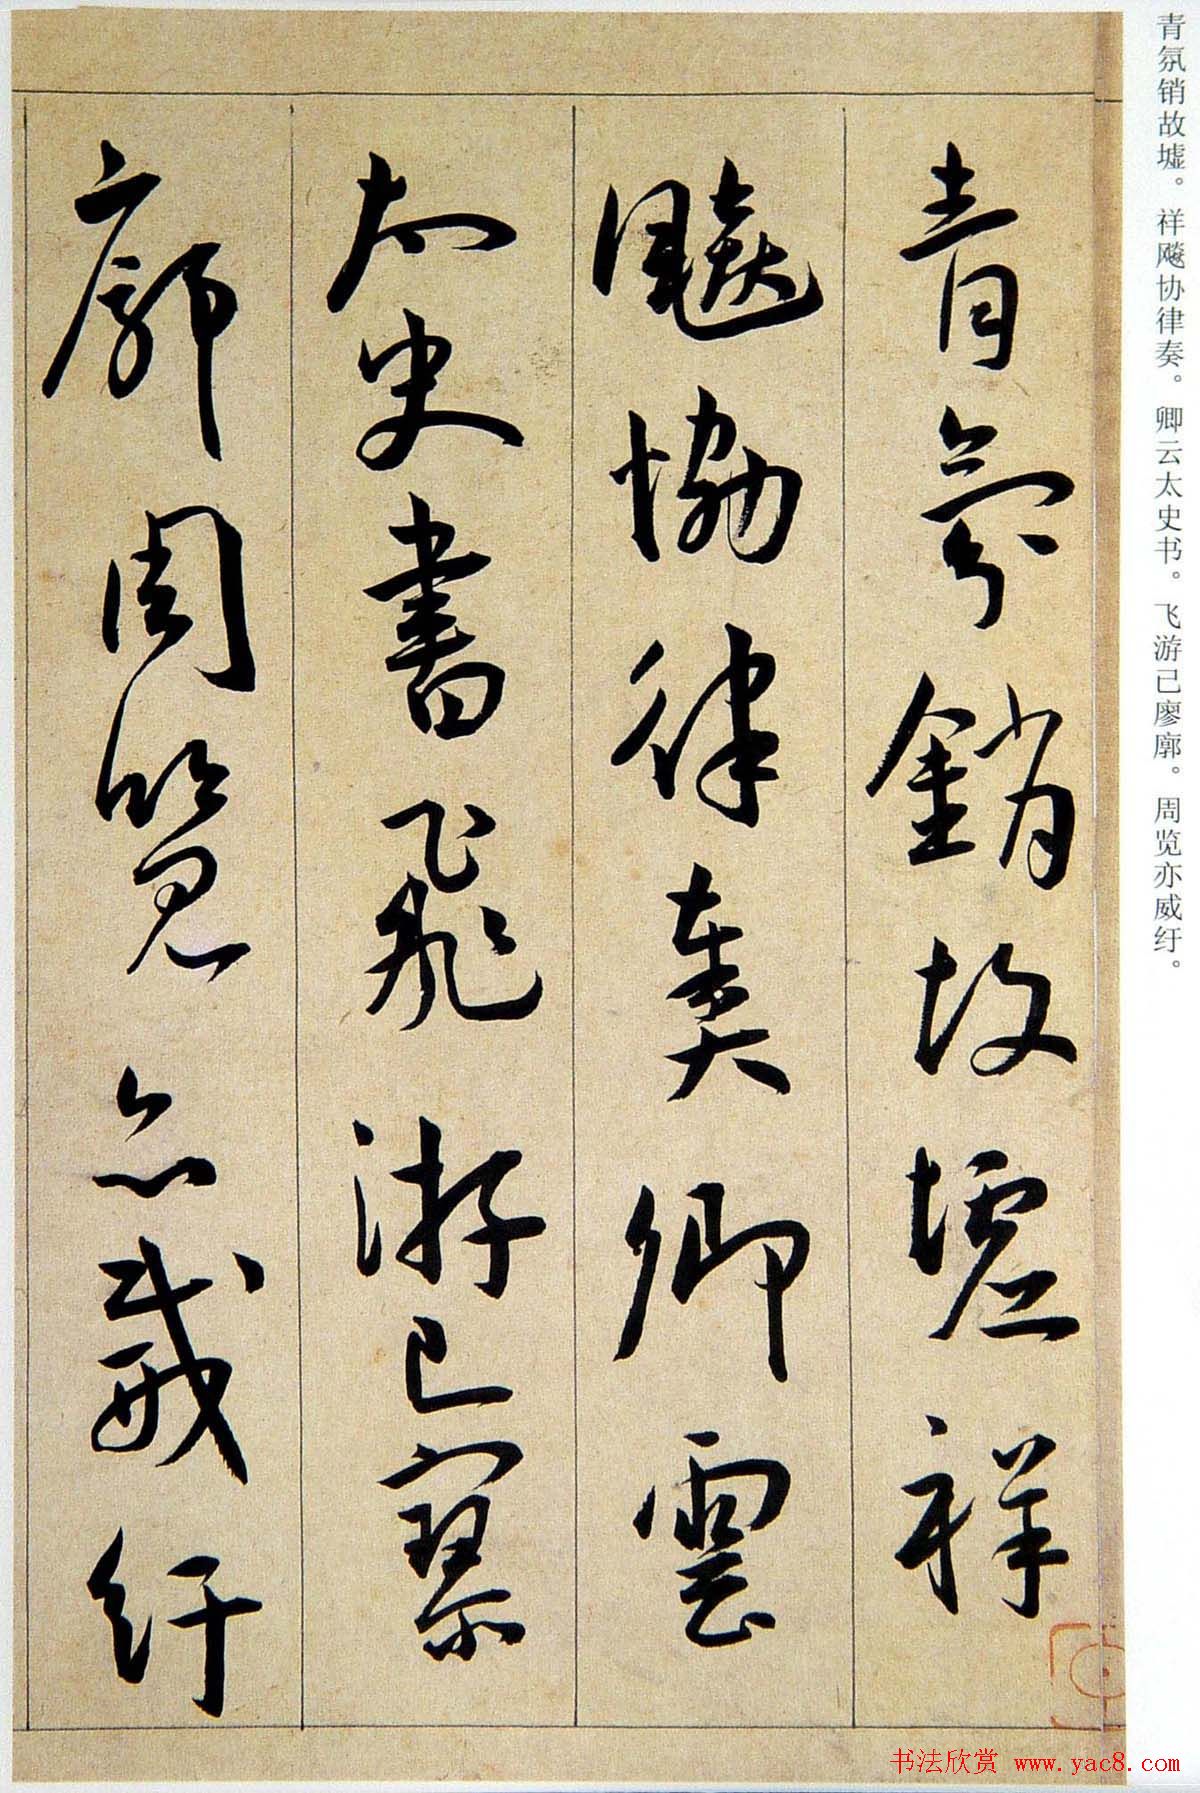 青氛销故墟。祥飚协律奏。卿云太史书。飞游己廖廓。周览亦威纡。
青氛銷故墟祥
飈恊律奏卿雲
太史書飛游已寥
廓周覽亦威紆
书法欣赏 www.yac8.com